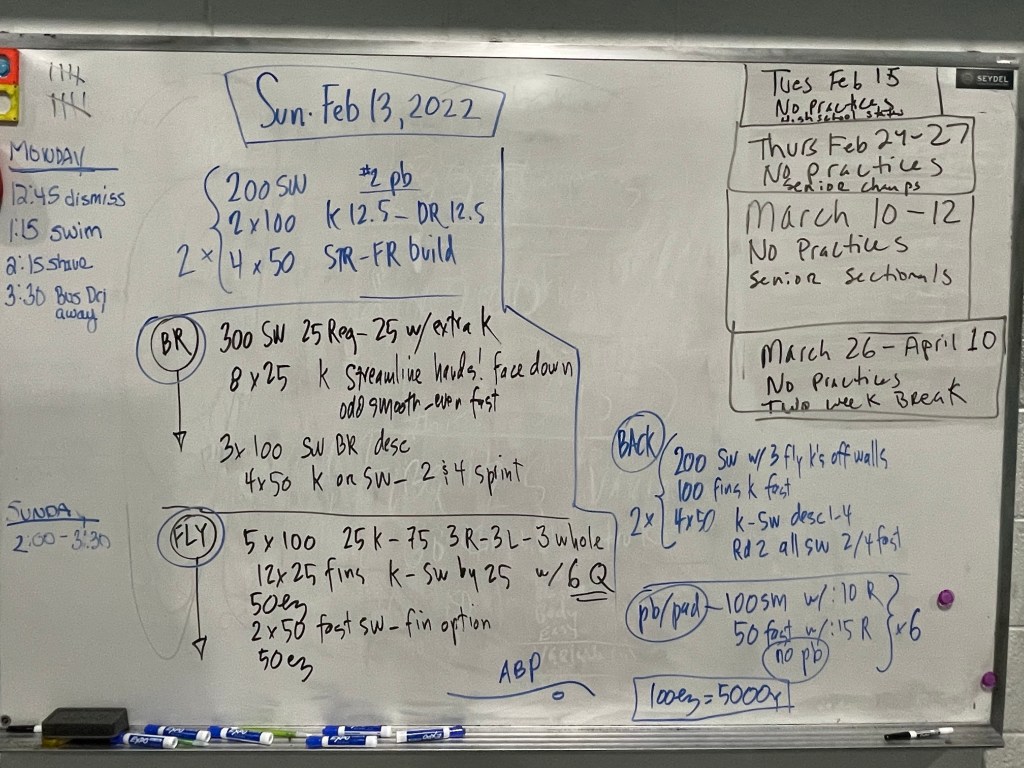 Sun. Feb 13, 2022
MONDAY
12:45 dismiss
1:15 swim
2:15 shave
3:30 Bus Dr
away
SUNDA
2:00-3:30
200 SW #2 pb
2x100 K 12.5 - DR 12.5
2x 4x50 STR-FR build
BR
300 SW 25 Reg-25 w/extra K
8x25 K Streamline hands! face down
odd smooth-even fast
3x100 SW BR desc
4x50 K or SW- 2 & 4 sprint
FLY
5x100 25K-75 3R-3L-3 whole
12x25 fins K-SW by 25 w/6 Q
50ez
2x50 fast sw-fin option
50ez
ABP
Tues Feb 15
No Practices
High School States
Thurs Feb 24-27
No Practices
Senior champs
March 10-12
No Practices
Senior Sectionals
March 26-April 10
No Practices
Two week Break
SEYDEL
BACK
200 SW w/3 fly k's off walls
100 fins k fast
2x 4x50 k-sw desc 1-4
Rd 2 all sw 2/4 fast
pb/pad - 100sm w/:10 R
50 fast w/:15 R x6
no pb
100ez = 5000y